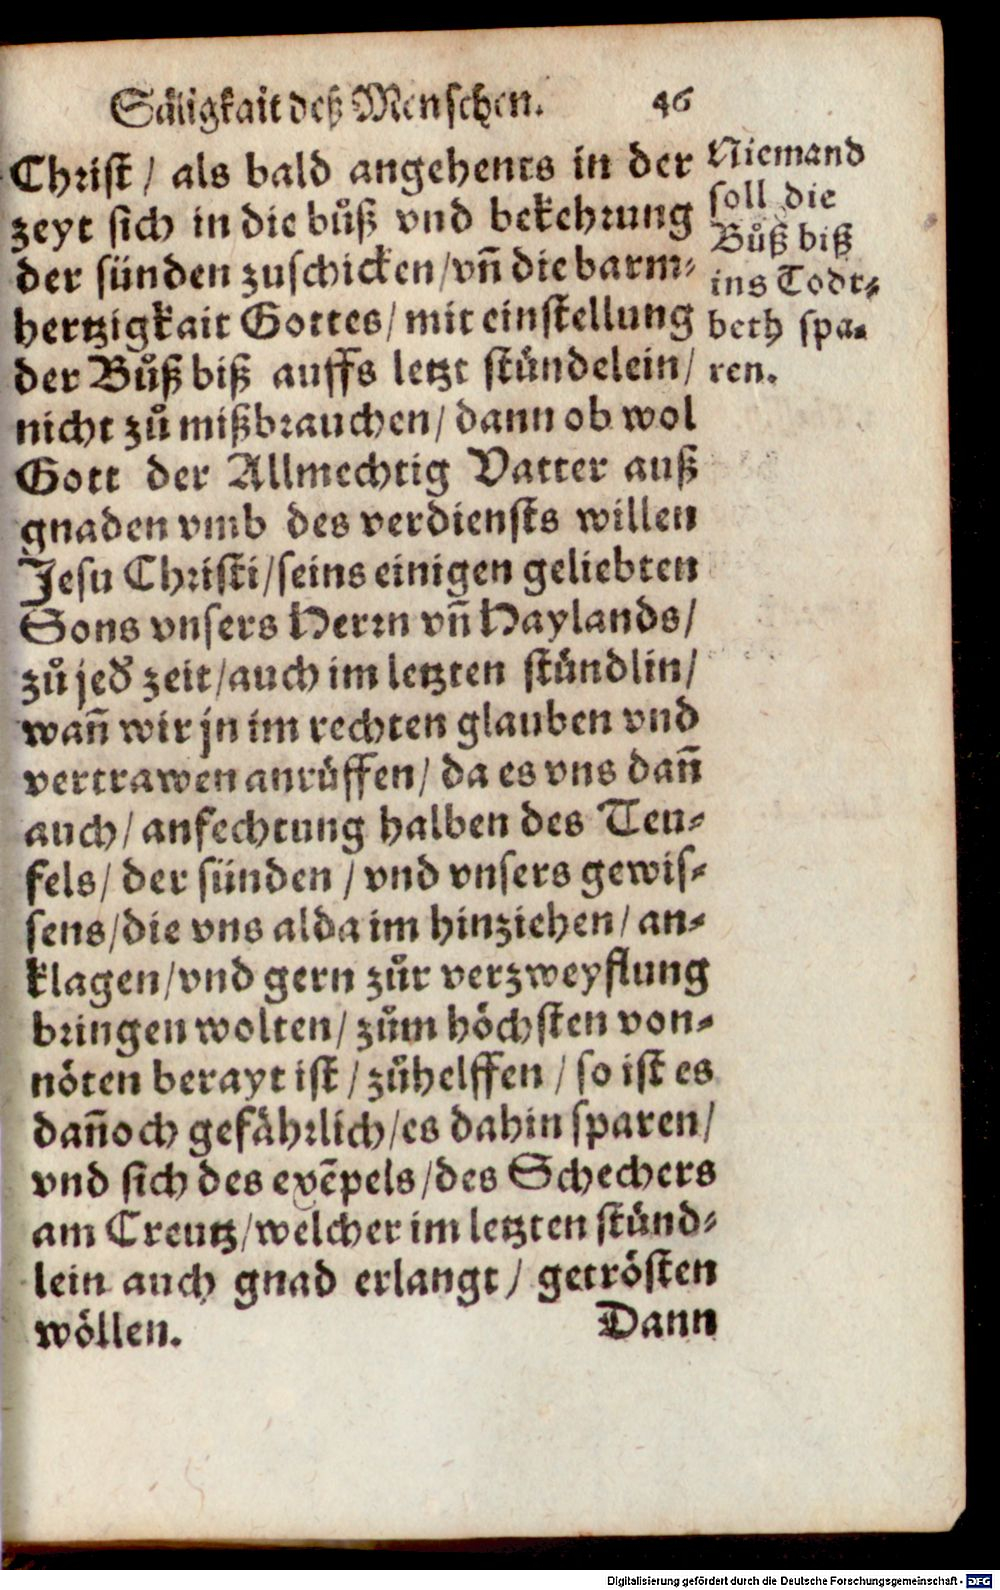 Säligkait deß Menschen. 46
Christ / als bald angehents in der
zeyt sich in die bůß vnd bekehrung
der sünden zuschicken/vñ die barm-
hertzigkait Gottes/ mit einstellung
der Bůß biß auffs letzt stündelein/
nicht zů mißbrauchen/ dann ob wol
Gott der Allmechtig Vatter auß
gnaden vmb des verdiensts willen
Jesu Christi/seins einigen geliebten
Sons vnsers Herrn vñ Haylands/
zů jed̃ zeit/auch im letzten stündlin/
wañ wir jn im rechten glauben vnd
vertrawen anrůffen/ da es vns dañ
auch/ anfechtung halben des Teu-
fels/ der sünden / vnd vnsers gewis-
sens/die vns alda im hinziehen/ an-
klagen/vnd gern zůr verzweyflung
bringen wolten/ zům höchsten von-
nöten berayt ist / zůhelffen / so ist es
dañoch gefährlich/es dahin sparen/
vnd sich des exẽpels/des Schechers
am Creutz/welcher im letzten stünd-
lein auch gnad erlangt / getrösten
wöllen.
Dann
Niemand
soll die
Bůß biß
ins Todt-
beth spa-
ren.
Digitalisierung gefördert durch die Deutsche Forschungsgemeinschaft - DFG